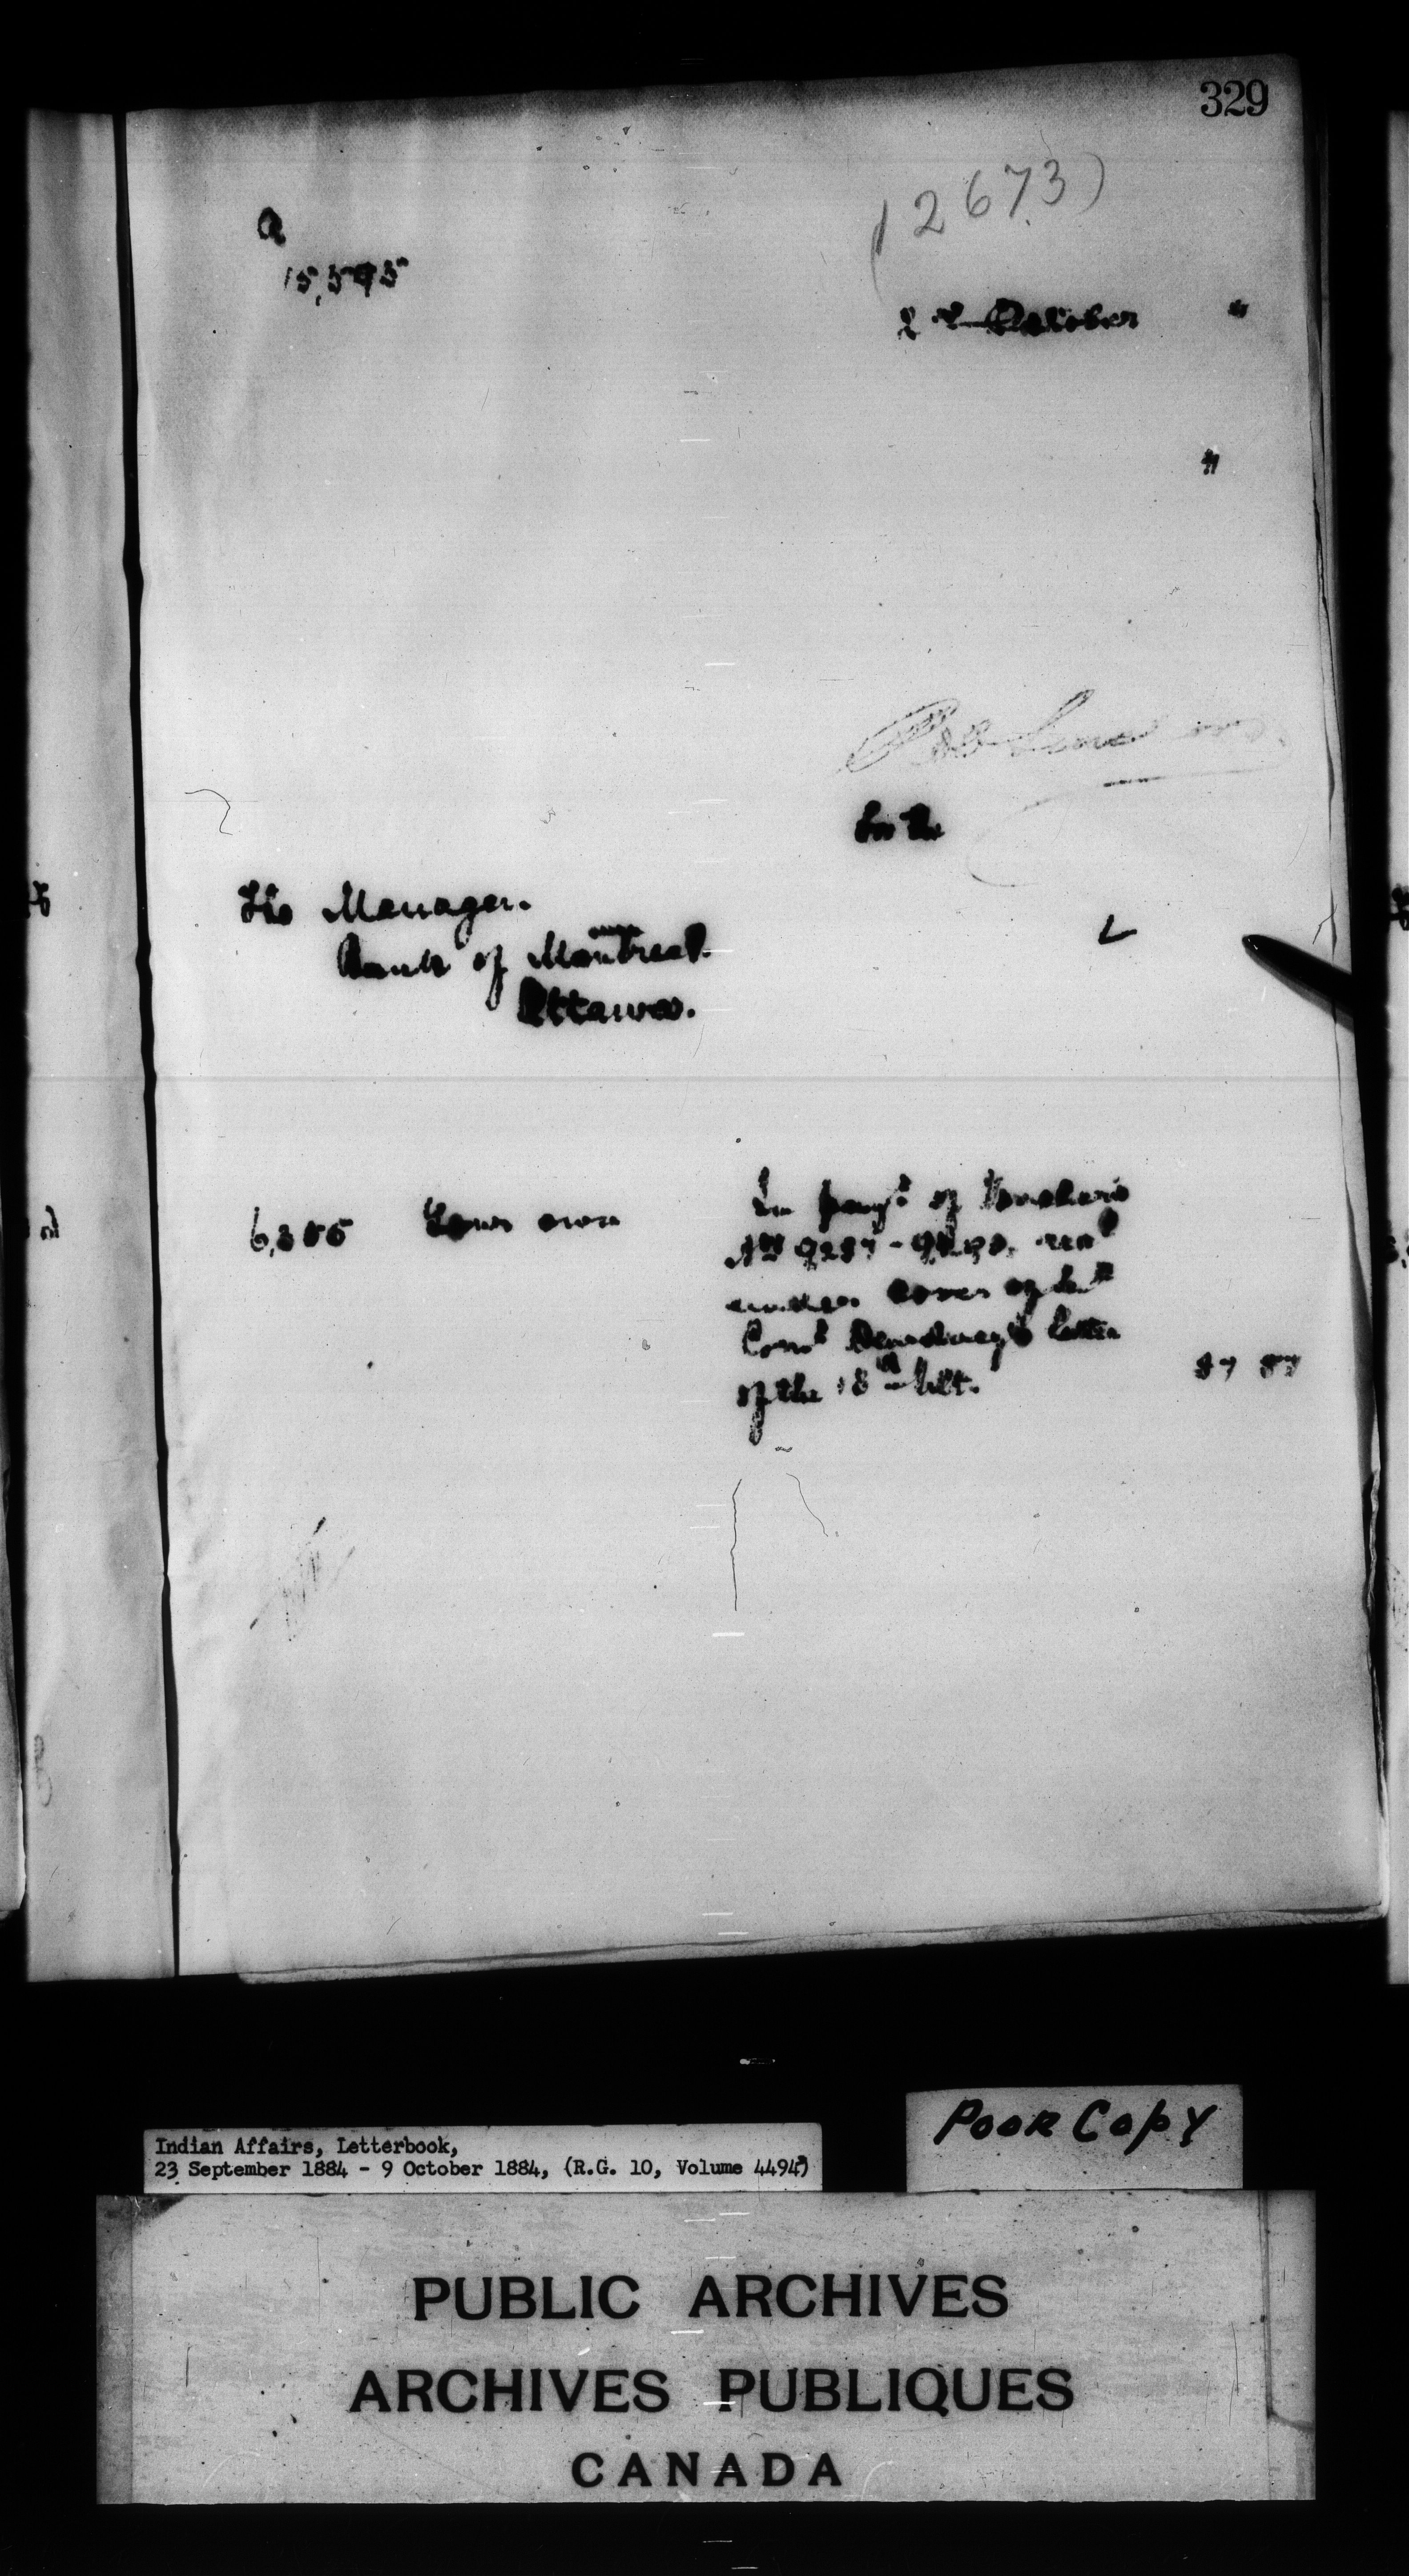 329
(2673)
a
15,595
2nd October "
"
for the
The Manager.
Bank of Montreal.
Ottawa.
6,355 Your own
In payt of Vouchers
Nos 9287 - recd
under cover of
Comr Dewdney's letter
of the 18th ult. 87 87
Indian Affairs, Letterbook,
23 September 1884 - 9 October 1884, (R.G. 10, Volume 4494)
POOR COPY
PUBLIC ARCHIVES
ARCHIVES PUBLIQUES
CANADA